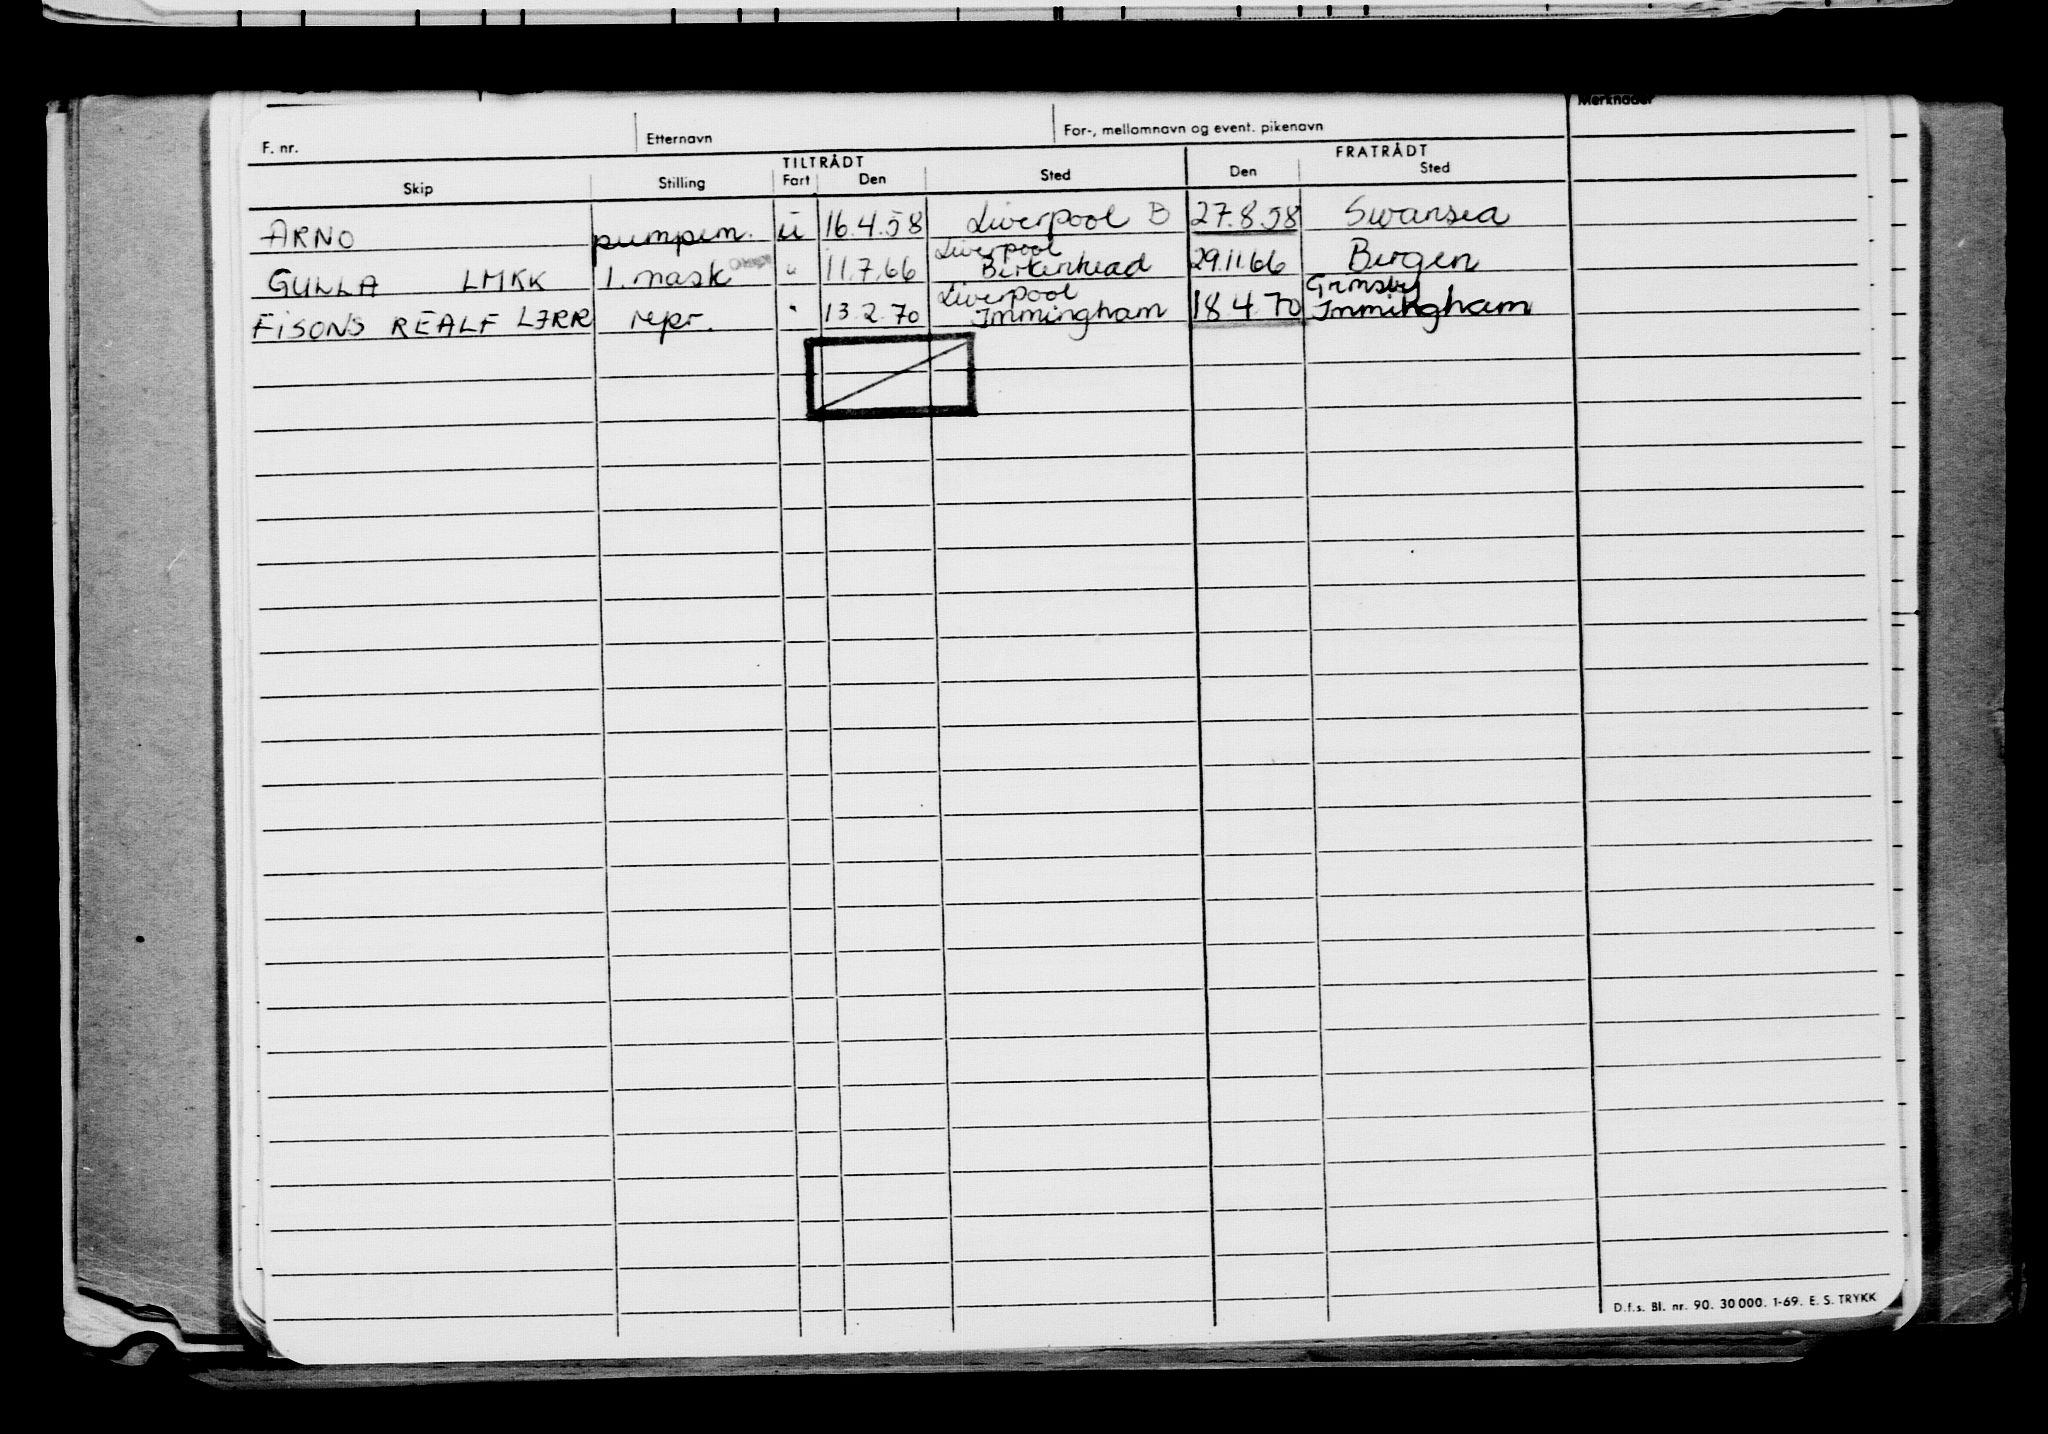 Merknader
F. nr. Etternavn For-, mellomnavn og event. pikenavn
TILTRÅDT FRATRÅDT
Skip Stilling Fart Den Sted Den Sted
ARNO pumpem. u 16.4.58 Liverpool B 27.8.58 Swansea
Liverpool
GULLA LMKK 1. mask " 11.7.66 Birkenhead 29.11.66 Bergen
Liverpool Grimsby
FISONS REALF LJRR repr. " 13.2.70 Immingham 18.4.70 Immingham
D.f.s. Bl. nr. 90. 30 000. 1-69. E. S. TRYKK